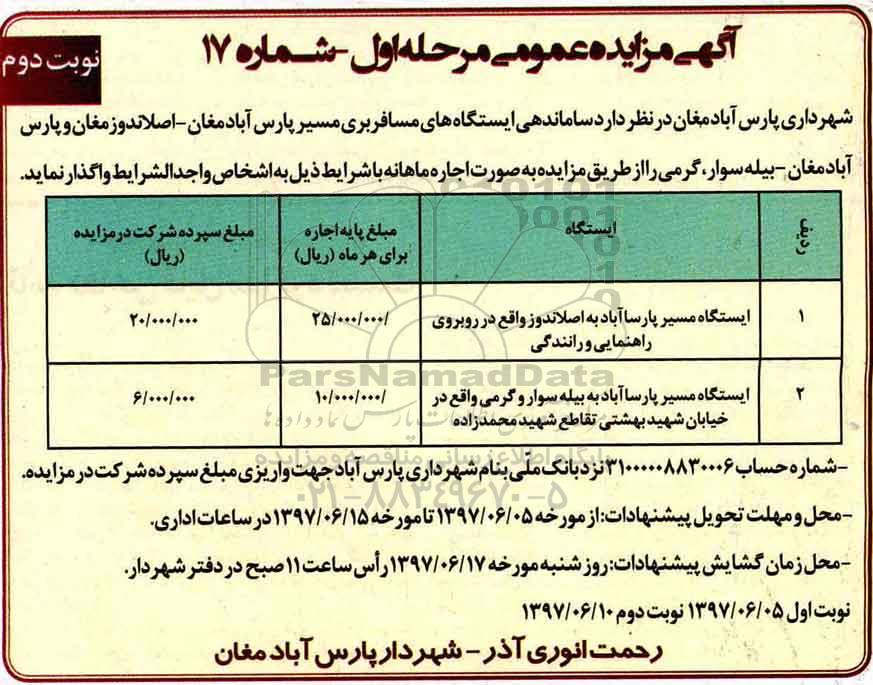 آگهی مزایده عمومی مرحله اول - شماره ۱۷
نوبت دوم
شهرداری پارس آباد مغان در نظر دارد ساماندهی ایستگاه های مسافربری مسیر پارس آباد مغان - اصلاندوز مغان و پارس
آباد مغان - بیله سوار، گرمی را از طریق مزایده به صورت اجاره ماهانه با شرایط ذیل به اشخاص واجد الشرایط واگذار نماید.
ردیف
ایستگاه
مبلغ پایه اجاره
برای هر ماه (ریال)
مبلغ سپرده شرکت در مزایده
(ریال)
۱
ایستگاه مسیر پارسا آباد به اصلاندوز واقع در روبروی
راهنمایی و رانندگی
۲۵/۰۰۰/۰۰۰/
۲۰/۰۰۰/۰۰۰
۲
ایستگاه مسیر پارسا آباد به بیله سوار و گرمی واقع در
خیابان شهید بهشتی تقاطع شهید محمدزاده
۱۰/۰۰۰/۰۰۰/
۶/۰۰۰/۰۰۰
ParsNamadData
پایگاه اطلاع رسانی مناقصه و مزایده
۰۲۱-۸۸۳۴۹۶۷۰-۵
-شماره حساب ۳۱۰۰۰۰۰۸۸۳۰۰۰۶ نزد بانک ملّی بنام شهرداری پارس آباد جهت واریزی مبلغ سپرده شرکت در مزایده.
-محل و مهلت تحویل پیشنهادات: از مورخه ۱۳۹۷/۰۶/۰۵ تا مورخه ۱۳۹۷/۰۶/۱۵ در ساعات اداری.
-محل زمان گشایش پیشنهادات: روز شنبه مورخه ۱۳۹۷/۰۶/۱۷ رأس ساعت ۱۱ صبح در دفتر شهردار.
نوبت اول ۱۳۹۷/۰۶/۰۵ نوبت دوم ۱۳۹۷/۰۶/۱۰
رحمت انوری آذر - شهردار پارس آباد مغان